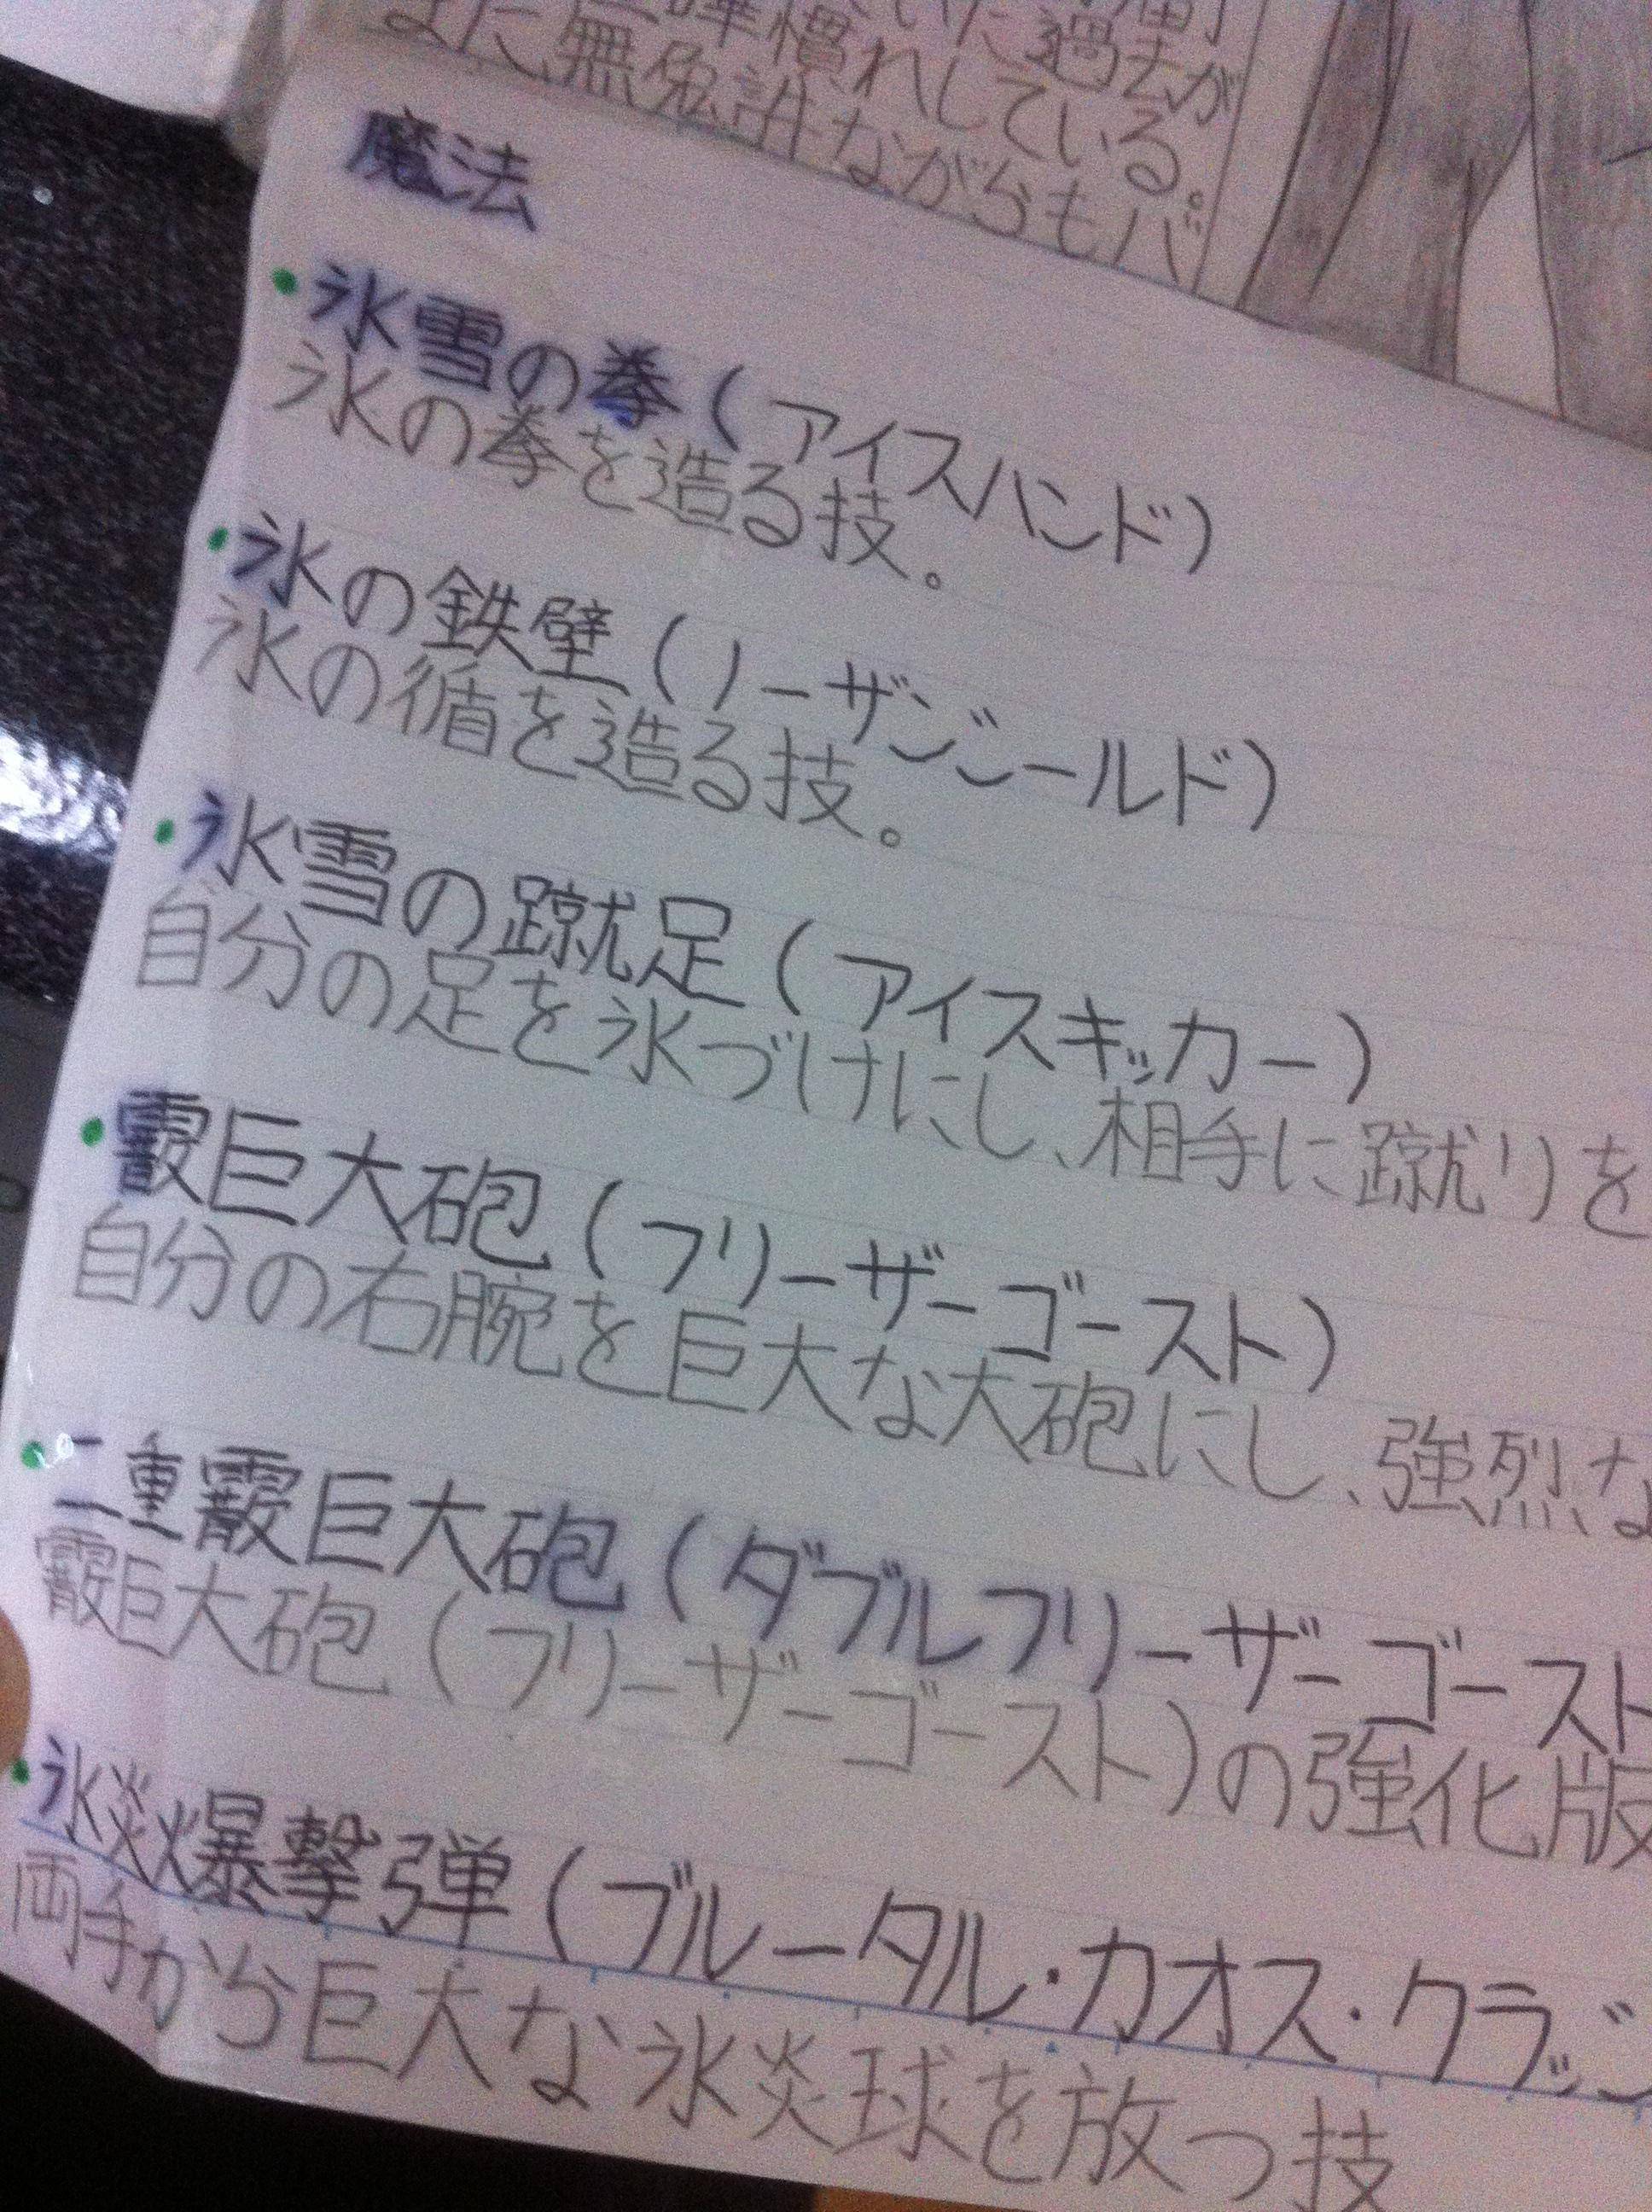 いた過去が
慣れしている。
また無免許ながらもバ
魔法
・氷雪の拳(アイスハンド)
氷の拳を造る技。
・氷の鉄壁(リーザンシールド)
氷の循を造る技。
・氷雪の蹴足(アイスキッカー)
自分の足を氷づけにし、相手に蹴りを
・霰巨大砲(フリーザーゴースト)
自分の右腕を巨大な大砲にし、強烈な
・二重霰巨大砲(ダブルフリーザーゴースト
霰巨大砲(フリーザーゴースト)の強化版
・氷焱爆撃弾(ブルータル・カオス・クラッシ
両手から巨大な氷炎球を放つ技